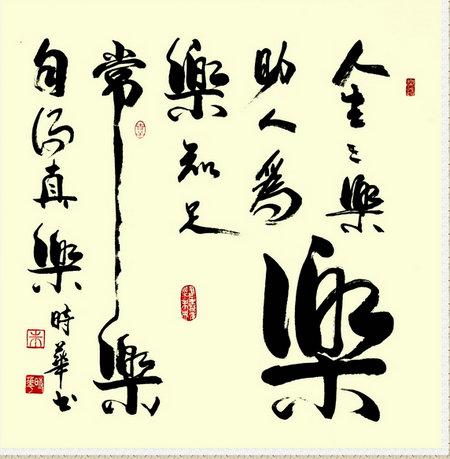 人生之樂
樂
助人爲
樂知足
常樂
自得真樂
時華书